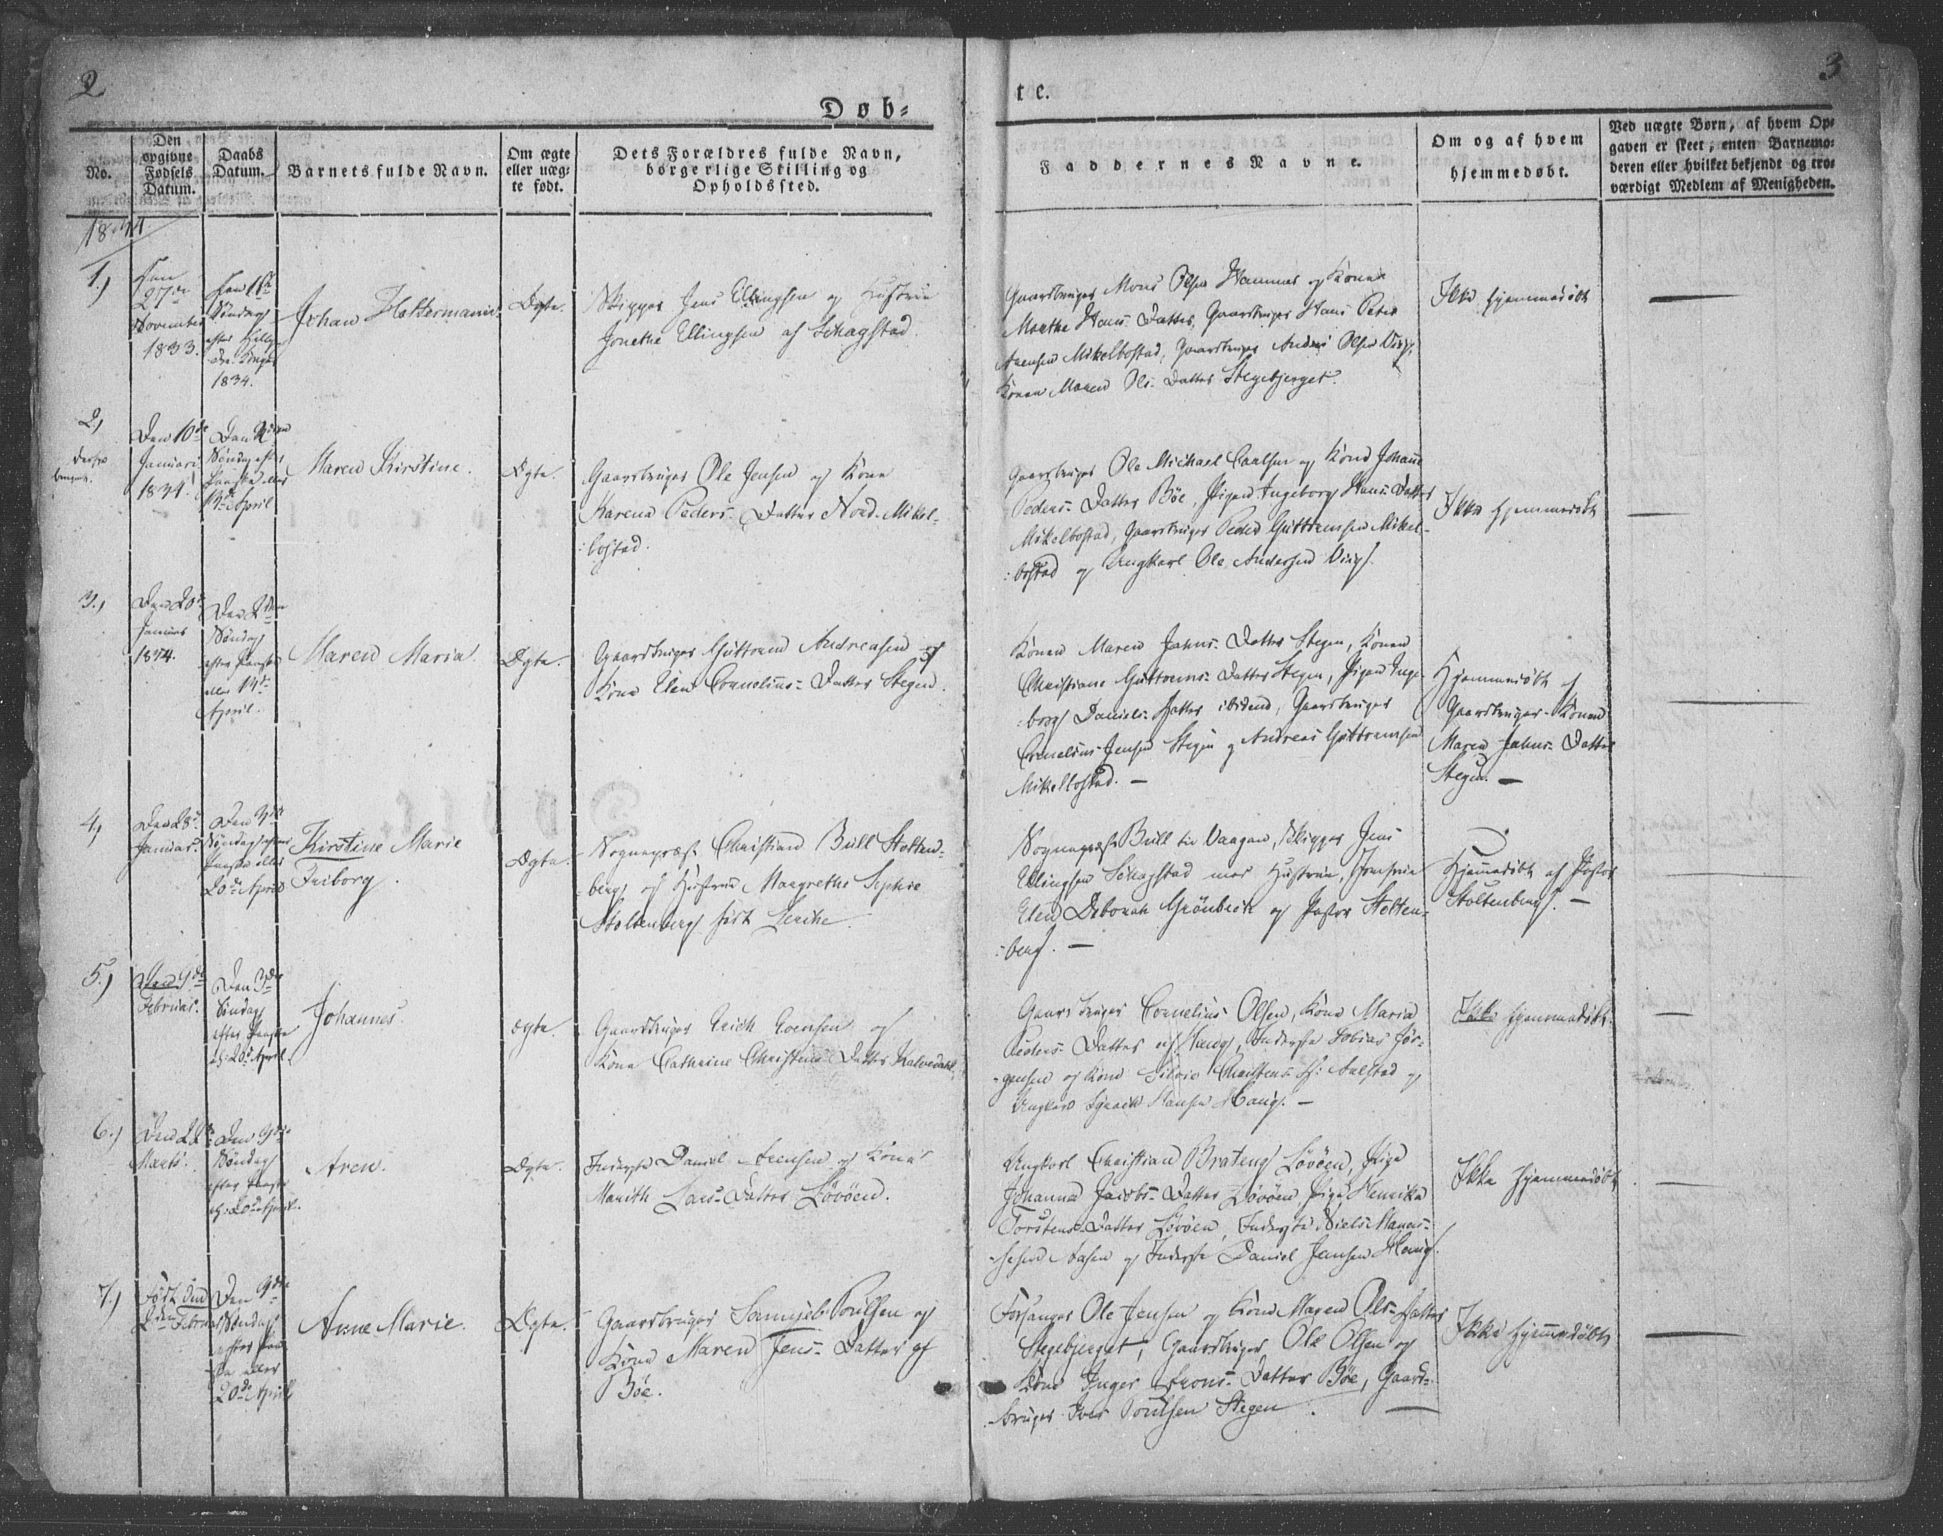 2
Døb=
te.
3
No.
Den opgivne Fødsels Datum.
Daabs Datum.
Barnets fulde Navn.
Om ægte eller uæg- te født.
Dets Forældres fulde Navn, borgerlige Stilling og Opholdssted.
Faddernes Navne.
Om og af hvem hjemmedøbt.
Ved uægte Børn, af hvem Op- gaven er skeet, enten Barnemo- deren eller hvilket bekjendt og tro- værdigt Medlem af Menigheden.
1834
1,)
Den
27de
November
1833.
Søndag
efter
1834.
Johan
Ægte.
Skipper Jens Ellingsen og Hustrue
Jonetha Ellingsen af Schagstad.
Gaardbruger Mons Olsen Hamnes og Kone
Marthe Hans Datter, Gaardbruger Hans Peter
Arensen Mikelbostad, Gaardbruger Anders Olsen
Konen Maren Ols- Datter Stegebjerget.
Ikke hjemmedøbt
2,
Den 10de
Januari
1834.
Den 2den
Søndag efter
Paaske eller
13de April
Maren Kirstine.
Ægte.
Gaardbruger Ole Jensen og Kone
Karena Peders- Datter Nord-Mikel-
:bostad.
Gaardbruger Ole Michael Carlsen og Kone Johanna
Peders- Datter Bøe, Pigen Ingeborg Hans- Datter
Mikelbostad, Gaardbruger Peder Guttormsen Mikel-
:bostad og Ungkarl Ole Andersen
Ikke hjemmedøbt
3.,
Den 20de
Januar
1834.
Den 2den
Søndag
efter Paaske
eller 13de
April.
Maren Maria.
Ægte.
Gaardbruger Guttorm Andreasen og
Kone Elen Cornelius- Datter Stegen.
Konen Maren Jahns- Datter Stegen, Konen
Christiane Guttorms- Datter Stegen, Pigen Inge-
:borg Daniels- Datter ibidem, Gaardbruger
Cornelius Jensen Stegen og Andreas Guttormsen
Mikelbostad. —
Hjemmedøbt af
Gaardbruger- Konen
Maren Jahns- Datter
Stegen. —
4,
Den 28de
Januar.
Den 3die
Søndag efter
Paaske eller
20de April
Kirstine Marie
Friborg.
Ægte.
Sognepræst Christian Bull Stolten-
:berg og Hustrue Margrethe Sophie
Stoltenberg født
Sognepræst Bull til Vaagan, Skipper Jens
Ellingsen Schagstad med Hustrue, Jomfrue
Elen Deborah Grønbech og Pastor Stolten-
:berg. —
Hjemmedøbt af Pastor
Stoltenberg. —
5.)
Den 9de
Februar.
Den 3die
Søndag
efter Paaske
20de April
Johannes.
Ægte.
Gaardbruger Erich Evensen og
Kone Cathrine Christens- Datter
Gaardbruger Cornelius Olsen, Kone Maria
Peders- Datter af Haug, Inderste Tobias Jør-
-gensen og Kone Silvia Christens- D: Aalstad og
Ungkarl Hansen Haug. —
Ikke hjemmedøbt.
6.)
Marts.
Den
Søndag
efter Paaske
20de April.
Aren.
Ægte.
Inderste Daniel Arensen og Kone
Marith Lars- Datter Løvøen.
Ungkarl Christian Brateng Løvøen, Pige
Johanna Jacobs- Datter Løvøen, Pige Henrika
Torstens- Datter Løvøen, Inderste Niels
Aasen og Inderste Daniel Jensen Haug.
Ikke hjemmedøbt
7.)
Født den
2den Februar
Den
Søndag
efter Paa-
ske eller
20de April
Anne Marie.
Ægte.
Gaardbruger Samuel Poulsen og
Kone Maren Jens- Datter af
Bøe.
Forsanger Ole Jensen og Kone Maren Ols- Datter
Stegebjerget, Gaardbruger Ole Olsen og
Kone Inger Arons- Datter Bøe, Gaard-
bruger Iver Poulsen Stegen.
Ikke hjemmedøbt